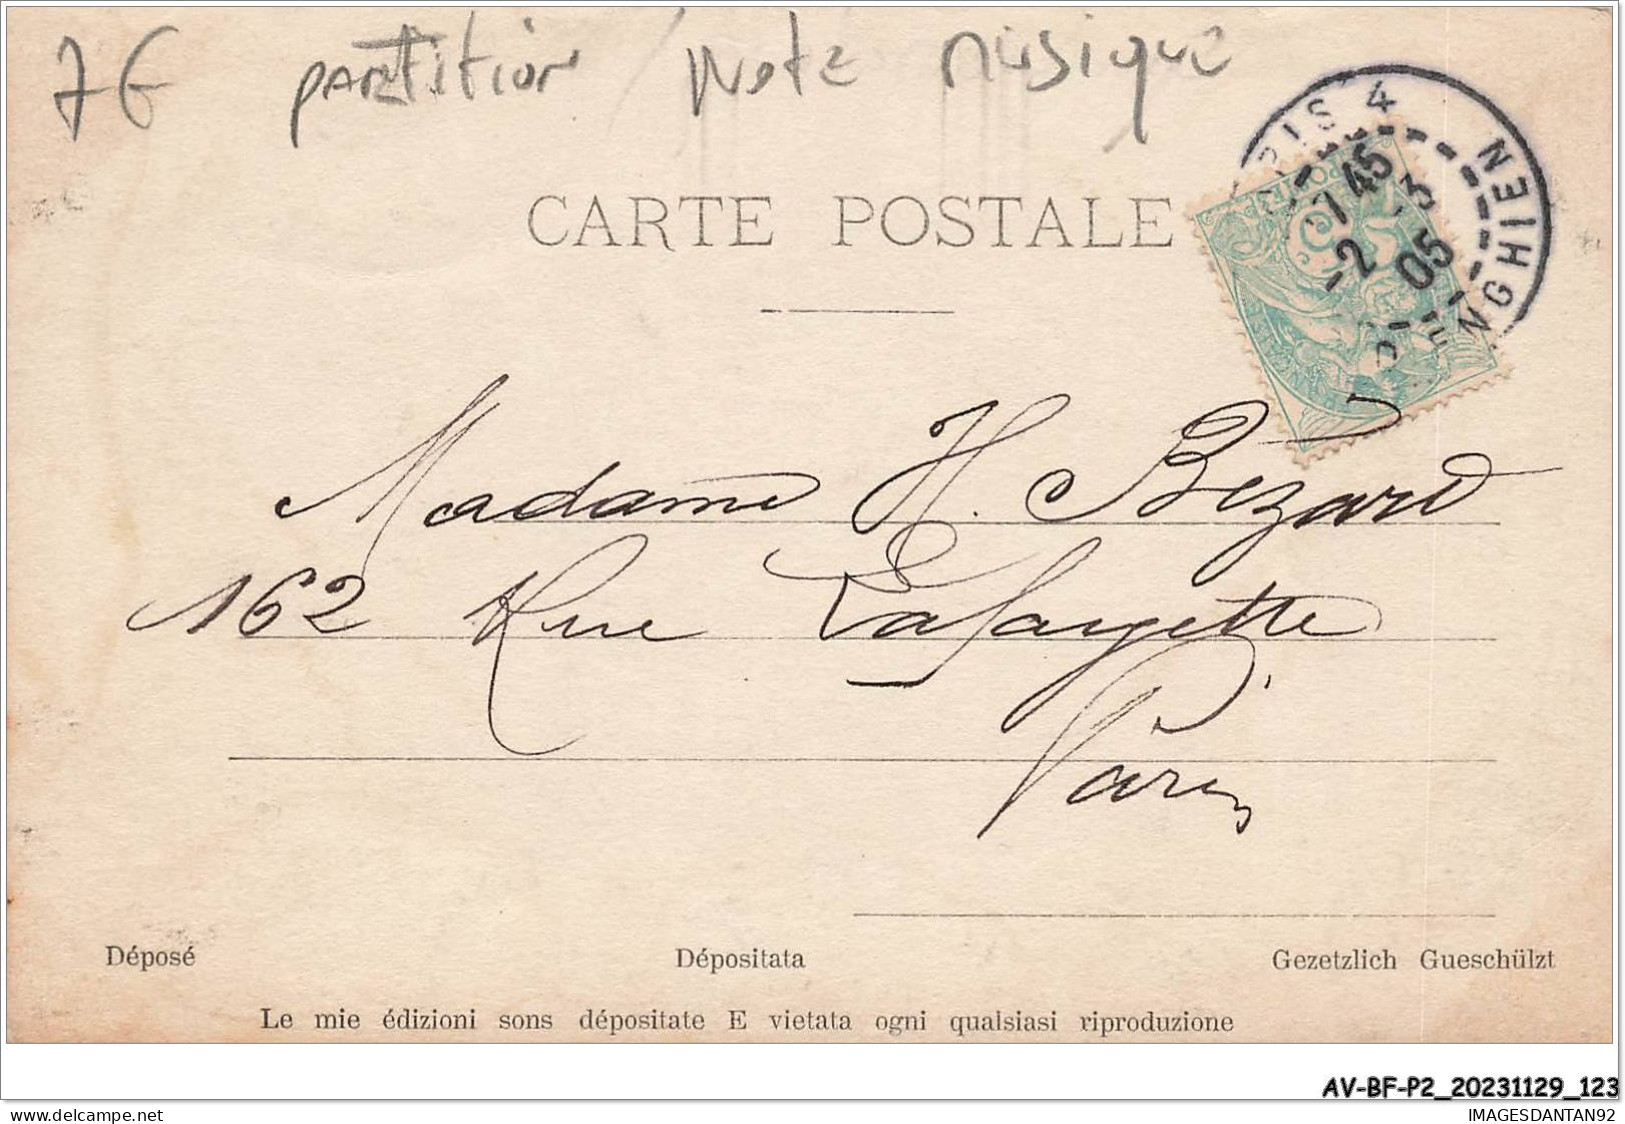 7€ partition / note musique
PARIS 4 ENGHIEN
7 45
2 3
05
CARTE POSTALE
Madame H. Bezard
162 Rue Lafayette
Paris
Déposé Dépositata Gezetzlich Gueschülzt
Le mie édizioni sons dépositate E vietata ogni qualsiasi riproduzione
AV-BF-P2_20231129_123
delcampe.net
IMAGESDANTAN92